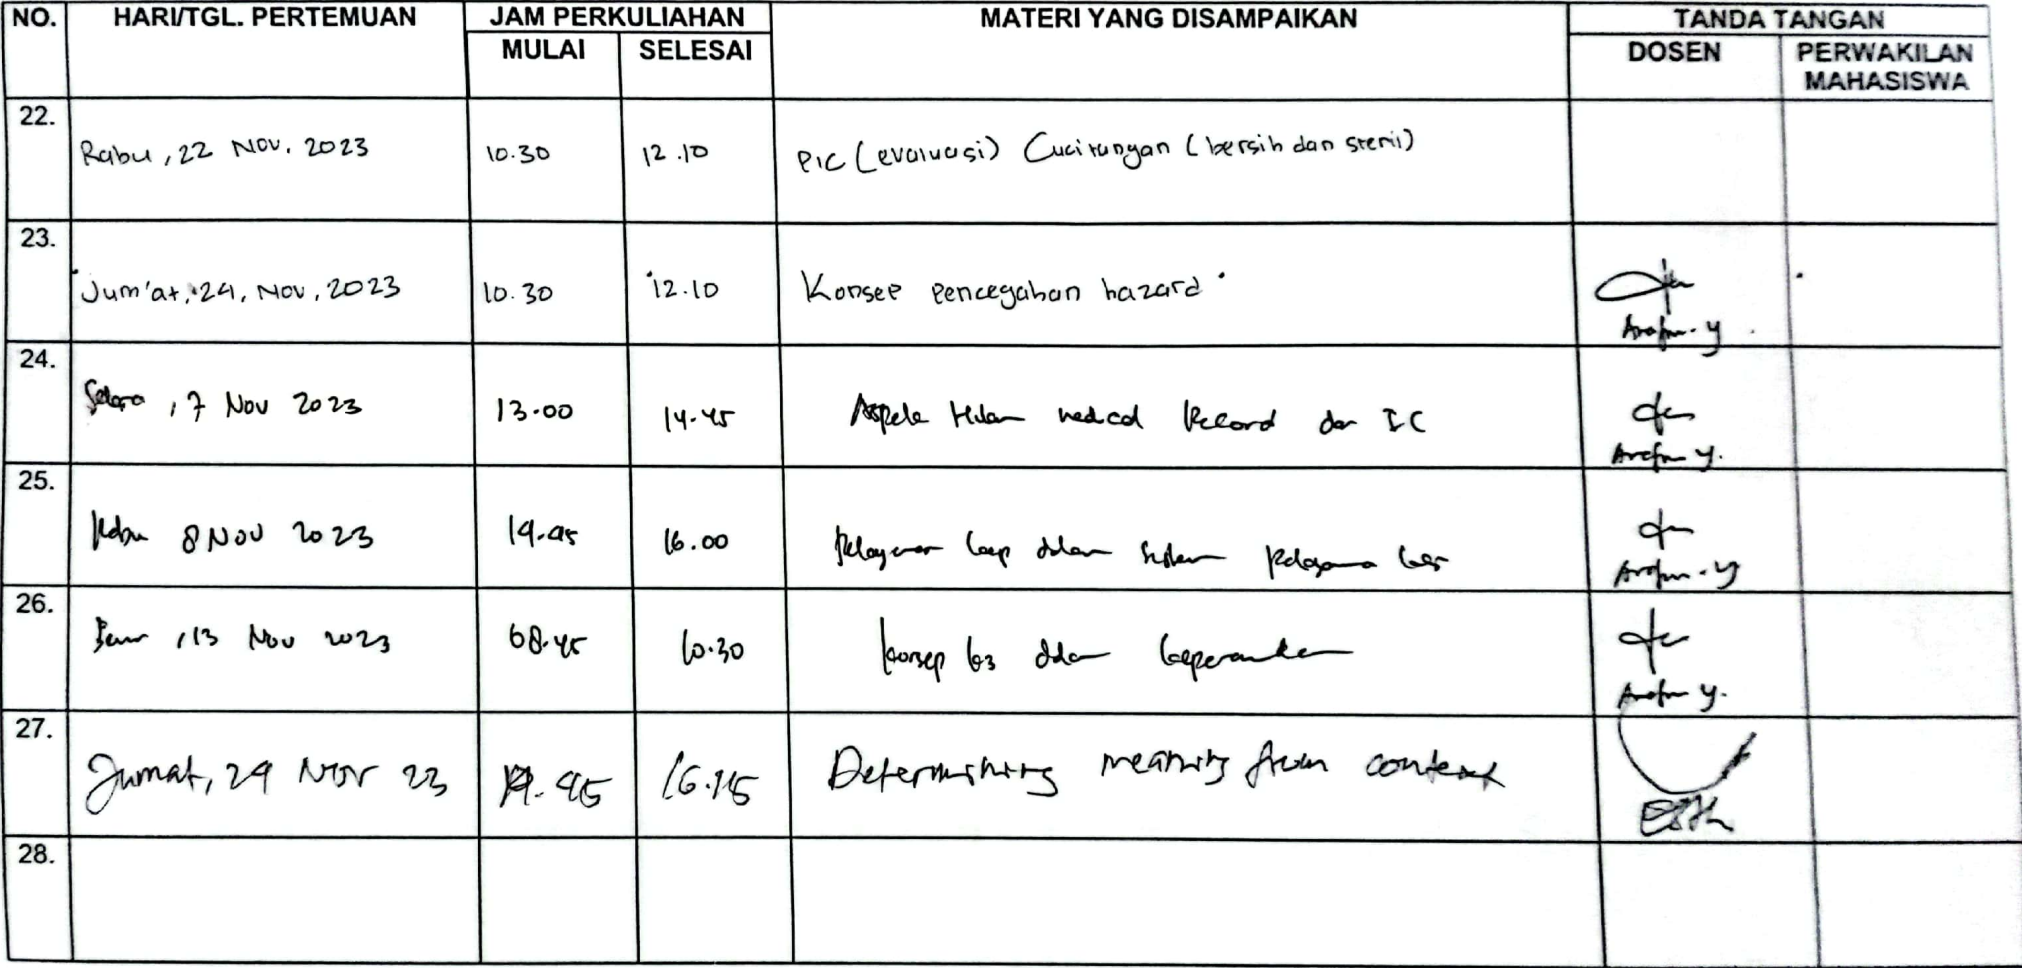 NO. HARI/TGL. PERTEMUAN JAM PERKULIAHAN MATERI YANG DISAMPAIKAN TANDA TANGAN
MULAI SELESAI DOSEN PERWAKILAN MAHASISWA
22. Rabu, 22 Nov. 2023 10.30 12.10 PIC (evaluasi) Cuci tangan (bersih dan steril)
23. Jum'at, 24, Nov, 2023 10.30 12.10 Konsep pencegahan hazard
24. Selasa, 7 Nov 2023 13.00 14.45 Aspek Hukum medical Record dan IC
Arafn. y
25. Rabu 8 Nov 2023 14.45 16.00 Pelayanan kep dalam sistem pelayanan kes
26. Senin, 13 Nov 2023 08.45 10.30 konsep k3 dalam keperawatan
27. Jumat, 24 Nov 23 14.45 16.15 Determining meaning from context
28.